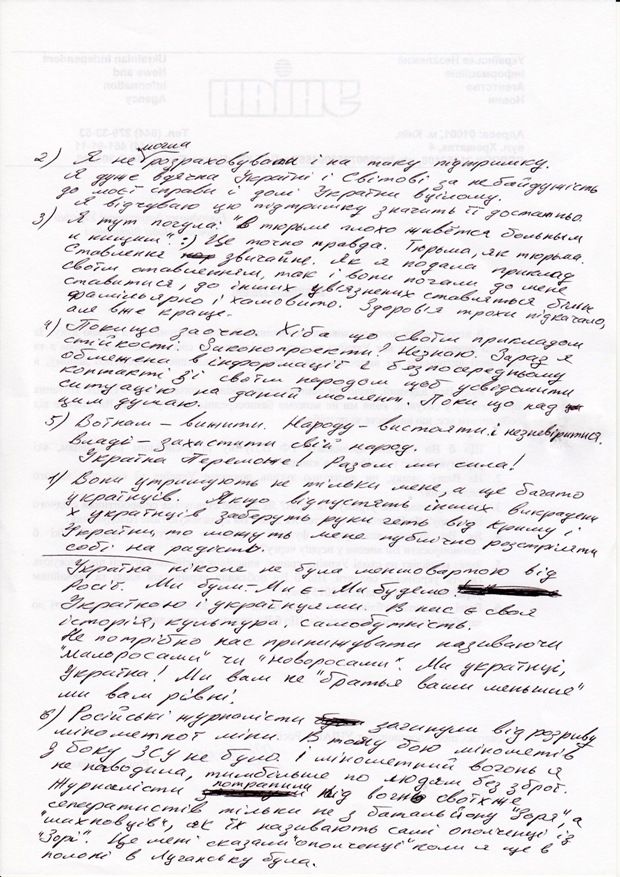 2) Я не могла розраховувати і на таку підтримку.
Я дуже вдячна Україні і Світові за небайдужість
до моєї справи і долі України вцілому.
Я відчуваю цю підтримку значить її достатньо.
3) Я тут почула: "в тюрьме плохо живётся больным
и нищим". :) Це точно правда. Тюрьма, як тюрьма.
Ставлення звичайне. Як я подала приклад
своїм ставленням, так і вони почали до мене
ставитися, до інших ув'язнених ставляться більш
фамільярно і хамовито. Здоровія трохи підкачало,
але вже краще.
4) Поки що заочно. Хіба що своїм прикладом
стійкості. Законопроекти? Незнаю. Зараз я
обмежена в інформації і безпосередньому
контакті зі своїм народом щоб усвідомити
ситуацію на даний момент. Поки що над
цим думаю.
5) Воїнам – вижити. Народу – вистояти і незневіритися.
Владі – захистити свій народ.
Україна Переможе! Разом ми сила!
1) Вони утримують не тільки мене, а ще багато
українців. Якщо відпустять інших викрадених
українців заберуть руки геть від Криму і
України, то можуть мене публічно розстріляти
собі на радість.
Україна ніколе не була меншовартою від
Росії. Ми були – Ми є – Ми будемо
Україною і українцями. В нас є своя
історія, культура, самобутність.
Не потрібно нас принижувати називаючи
"малоросами" чи "новоросами". Ми українці,
Україна! Ми вам не "братья ваши меньшие"
ми вам рівні!
6) Російські журналісти загинули від розриву
мінометної міни. В тому бою мінометів
з боку ЗСУ не було. І мінометний вогонь я
не наводила, тимбільше по людям без зброї.
Журналісти потрапили під вогнь своїх же
сепаратистів тільки не з батальйону "Зоря", а
"шахковців", як їх називають самі ополченці із
"Зорі". Це мені сказали "ополченці" коли я ще в
полоні в Луганську була.